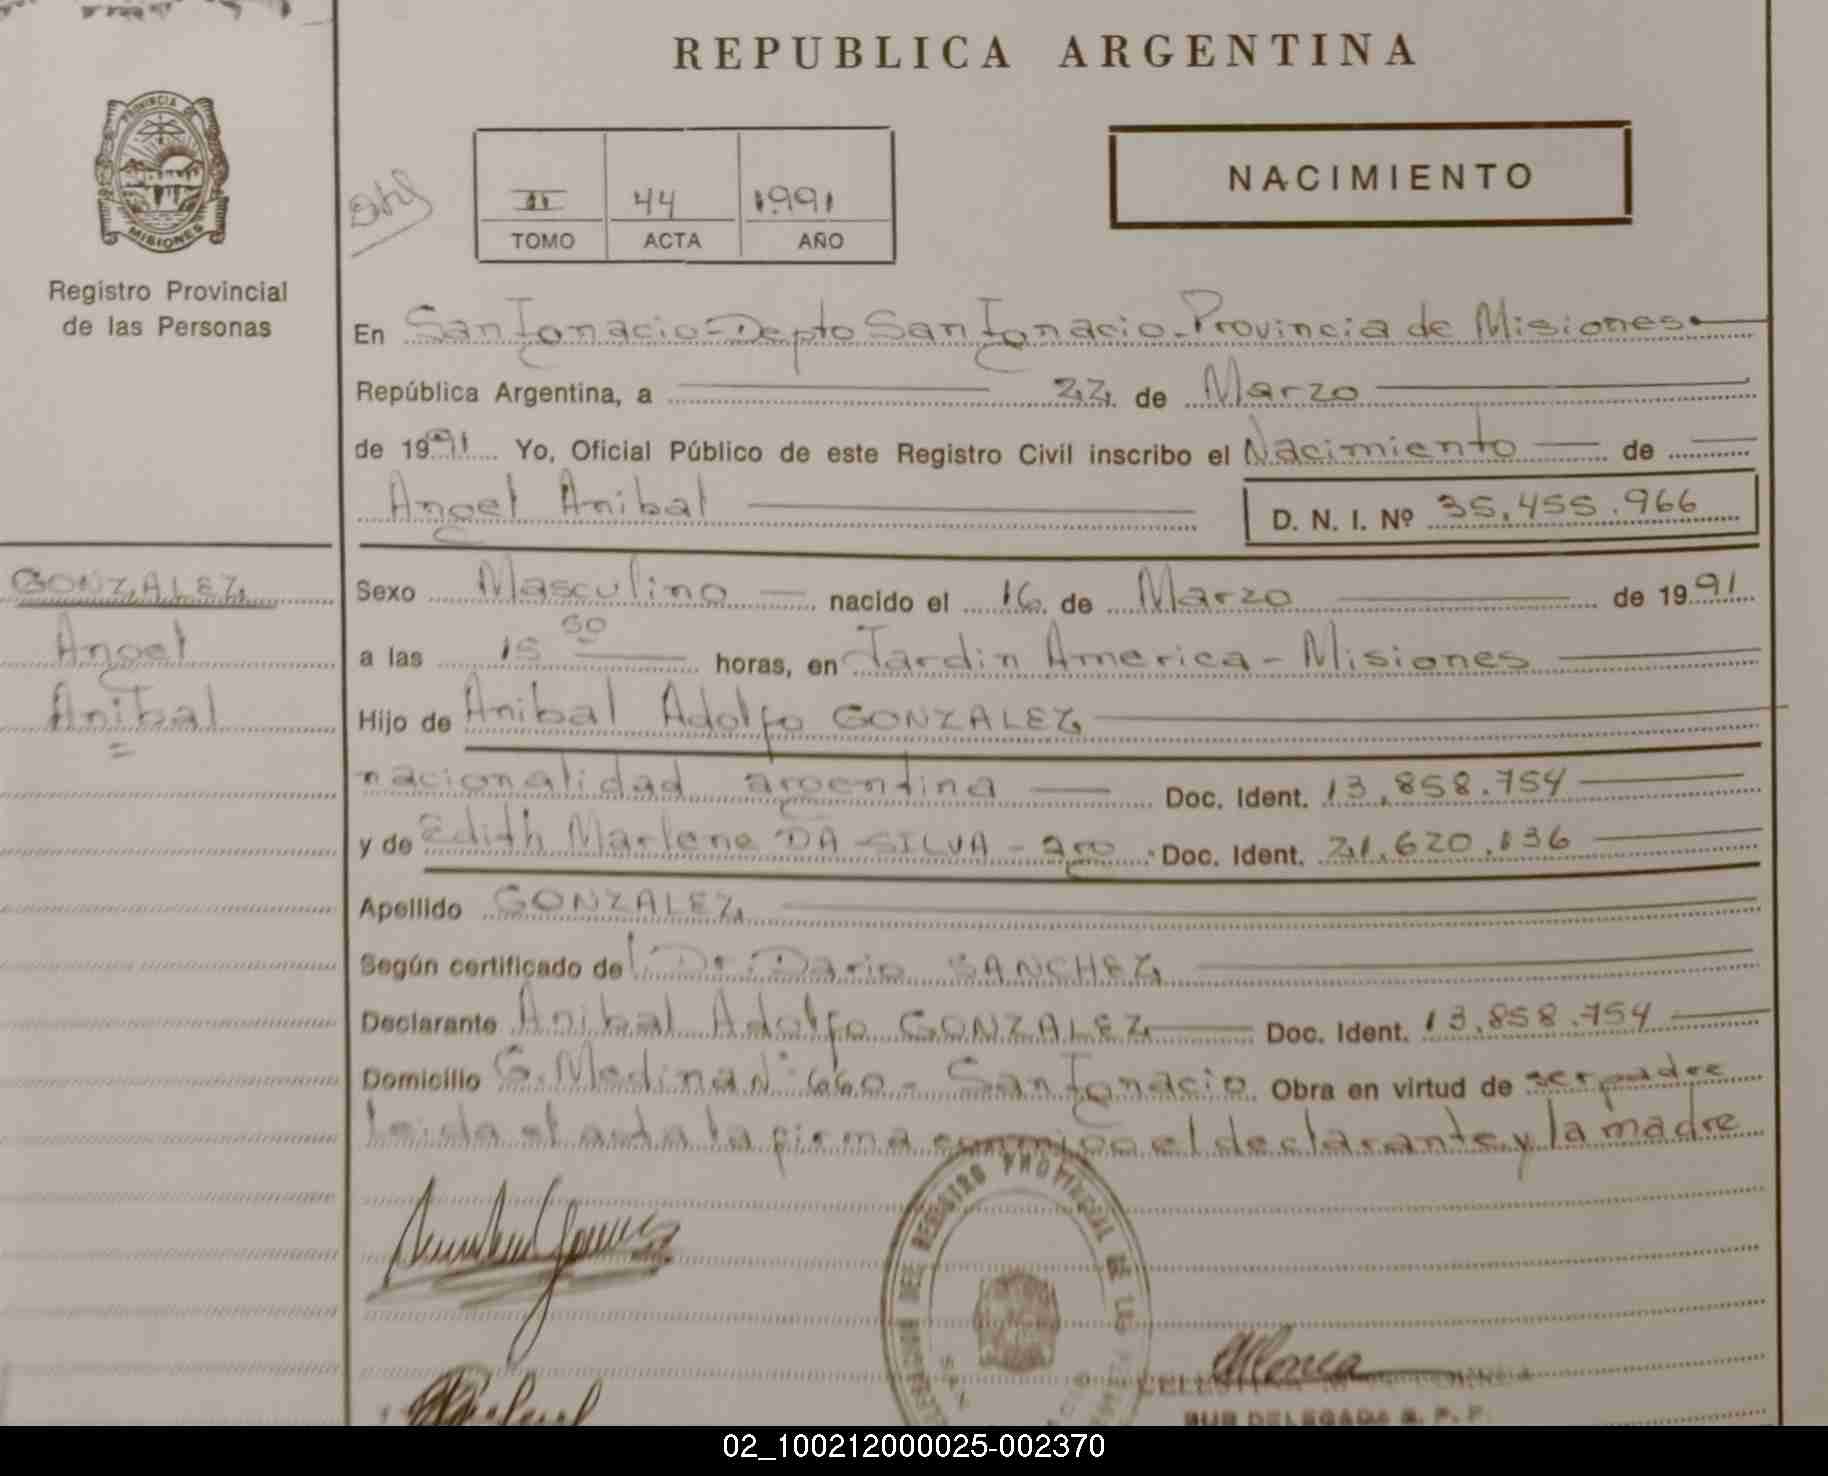 REPUBLICA ARGENTINA
PROVINCIA DE
MISIONES
Registro Provincial
de las Personas
II 44 1991
TOMO ACTA AÑO
NACIMIENTO
En San Ignacio - Depto San Ignacio - Provincia de Misiones
República Argentina, a 22 de Marzo
de 1991 Yo, Oficial Público de este Registro Civil inscribo el Nacimiento de
Angel Anibal D. N. I. Nº 35.455.966
GONZALEZ
Angel
Anibal
Sexo Masculino nacido el 16 de Marzo de 1991
a las 15 50 horas, en Jardin America - Misiones
Hijo de Anibal Adolfo GONZALEZ
nacionalidad argentina Doc. Ident. 13.858.754
y de Edith Marlene DA SILVA - arg. Doc. Ident. 21.620.136
Apellido GONZALEZ
Según certificado del Dr. Dario SANCHEZ
Declarante Anibal Adolfo GONZALEZ Doc. Ident. 13.858.754
Domicilio G. Medina Nº 660 - San Ignacio Obra en virtud de ser padre
leida el acta la firma conmigo el declarante y la madre
DELEGACION DEL REGISTRO PROVINCIAL DE LAS
SUB DELEGADA R. P. P.
02_100212000025-002370